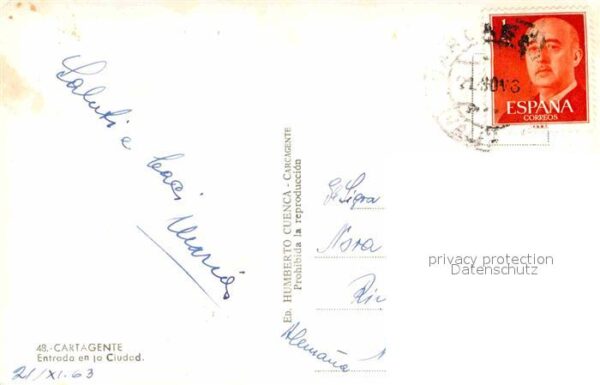 Saluti e
baci
Marios
48.-CARTAGENTE
Entrada en la Ciudad.
21/XI.63
ED. HUMBERTO CUENCA - CARCAGENTE
Prohibida la reproducción
ESPAÑA
CORREOS
Sigra
Nora
Alemaña
privacy protection
Datenschutz